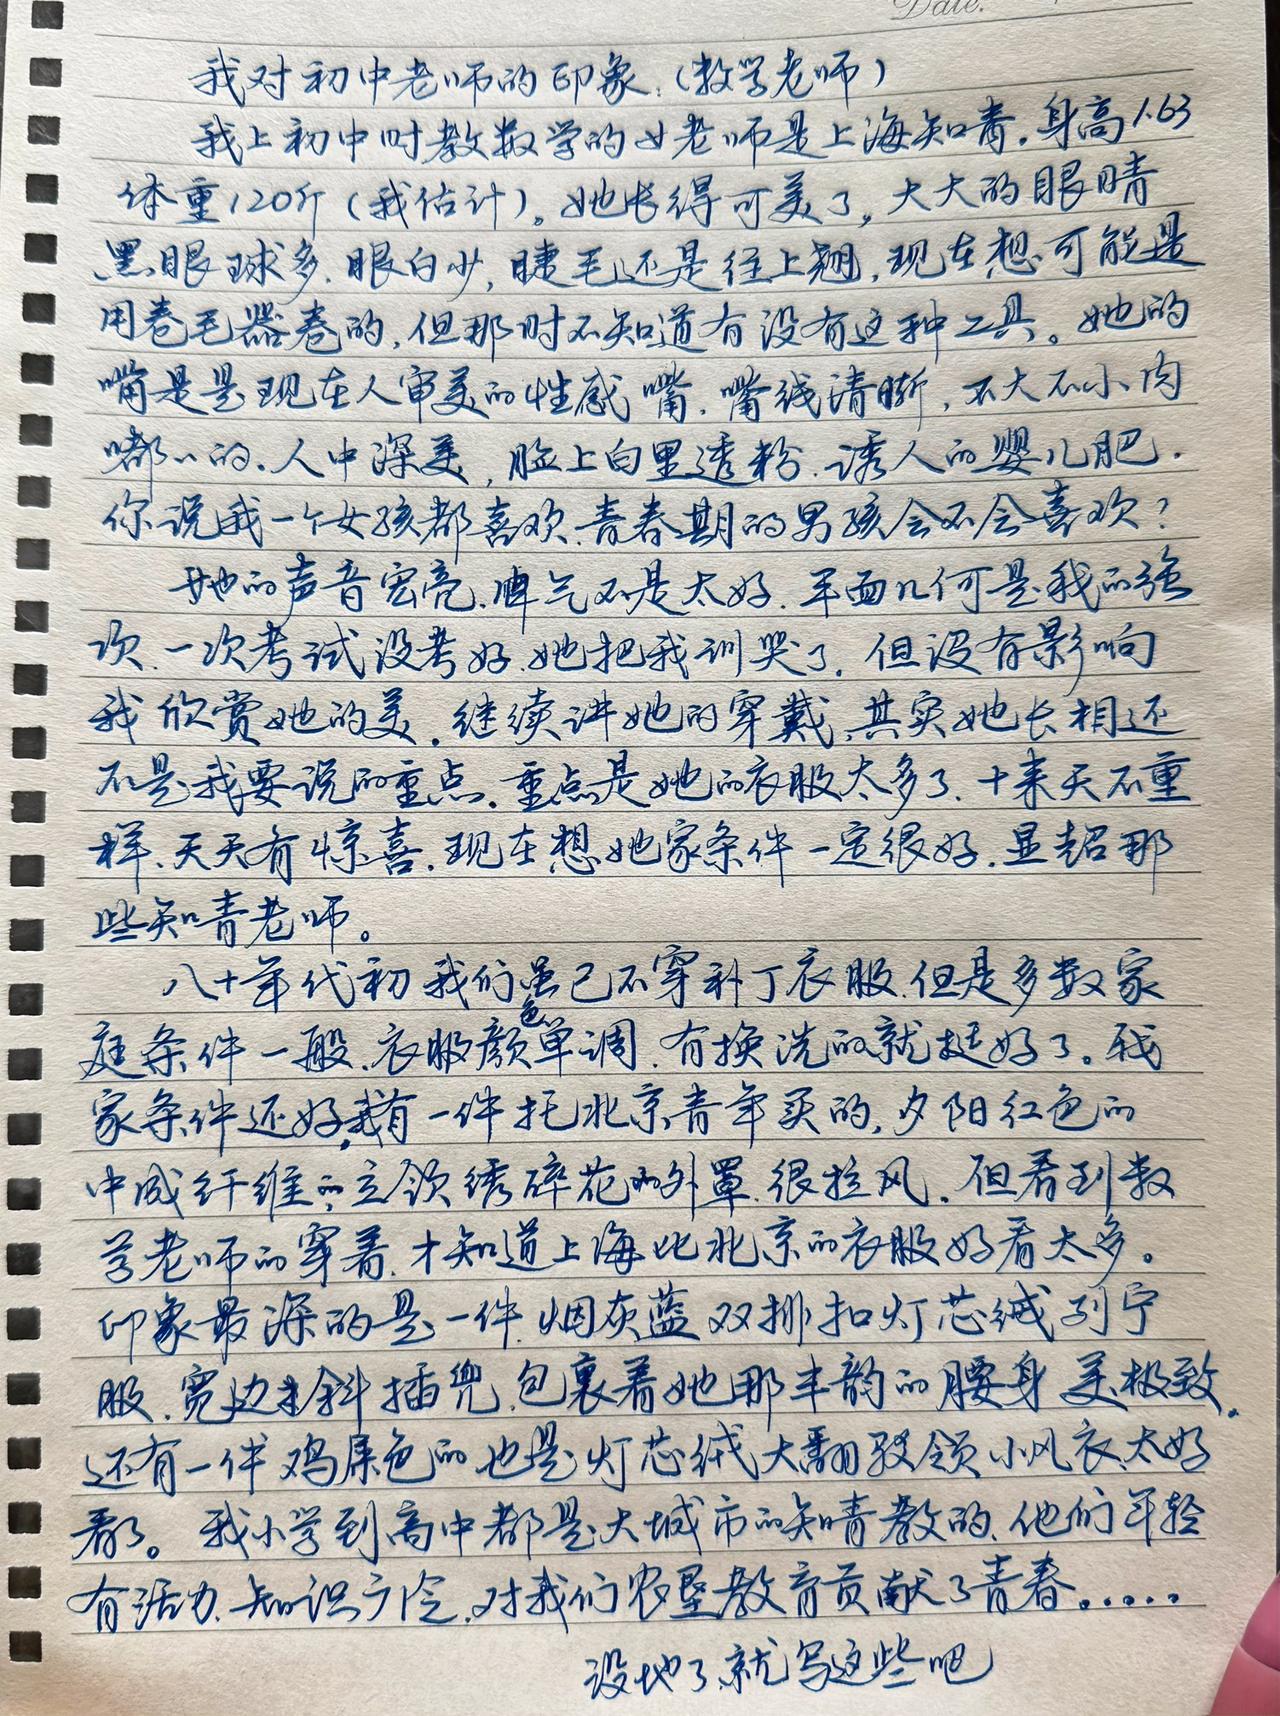 Date.
我对初中老师的印象.(数学老师)
我上初中时教数学的女老师是上海知青.身高1.63
体重120斤(我估计)。她长得可美了,大大的眼睛
黑眼球多.眼白少,睫毛还是往上翘,现在想可能是
用卷毛器卷的,但那时不知道有没有这种工具。她的
嘴是是现在人审美的性感嘴.嘴线清晰,不大不小肉
嘟〃的.人中深美,脸上白里透粉.诱人的婴儿肥.
你说我一个女孩都喜欢.青春期的男孩会不会喜欢?
她的声音宏亮.脾气不是太好.平面几何是我的强
项.一次考试没考好.她把我训哭了.但没有影响
我欣赏她的美.继续讲她的穿戴,其实她长相还
不是我要说的重点.重点是她的衣服太多了.十来天不重
样.天天有惊喜.现在想她家条件一定很好.显超那
些知青老师。
八十年代初我们虽已不穿补丁衣服.但是多数家
庭条件一般.衣服颜色单调.有换洗的就挺好了。我
家条件还好,我有一件托北京青年买的,夕阳红色的
中成纤维的立领绣碎花的外罩.很拉风.但看到数
学老师的穿着.才知道上海比北京的衣服好看太多。
印象最深的是一件.烟灰蓝双排扣灯芯绒列宁
服.宽边斜插兜.包裹着她那丰韵的腰身美极致.
还有一件鸡屎色的.也是灯芯绒大翻驳领小风衣.太好
看了。我小学到高中都是大城市的知青教的.他们年轻
有活力.知识广泛.对我们农垦教育贡献了青春。.....
没地了.就写这些吧